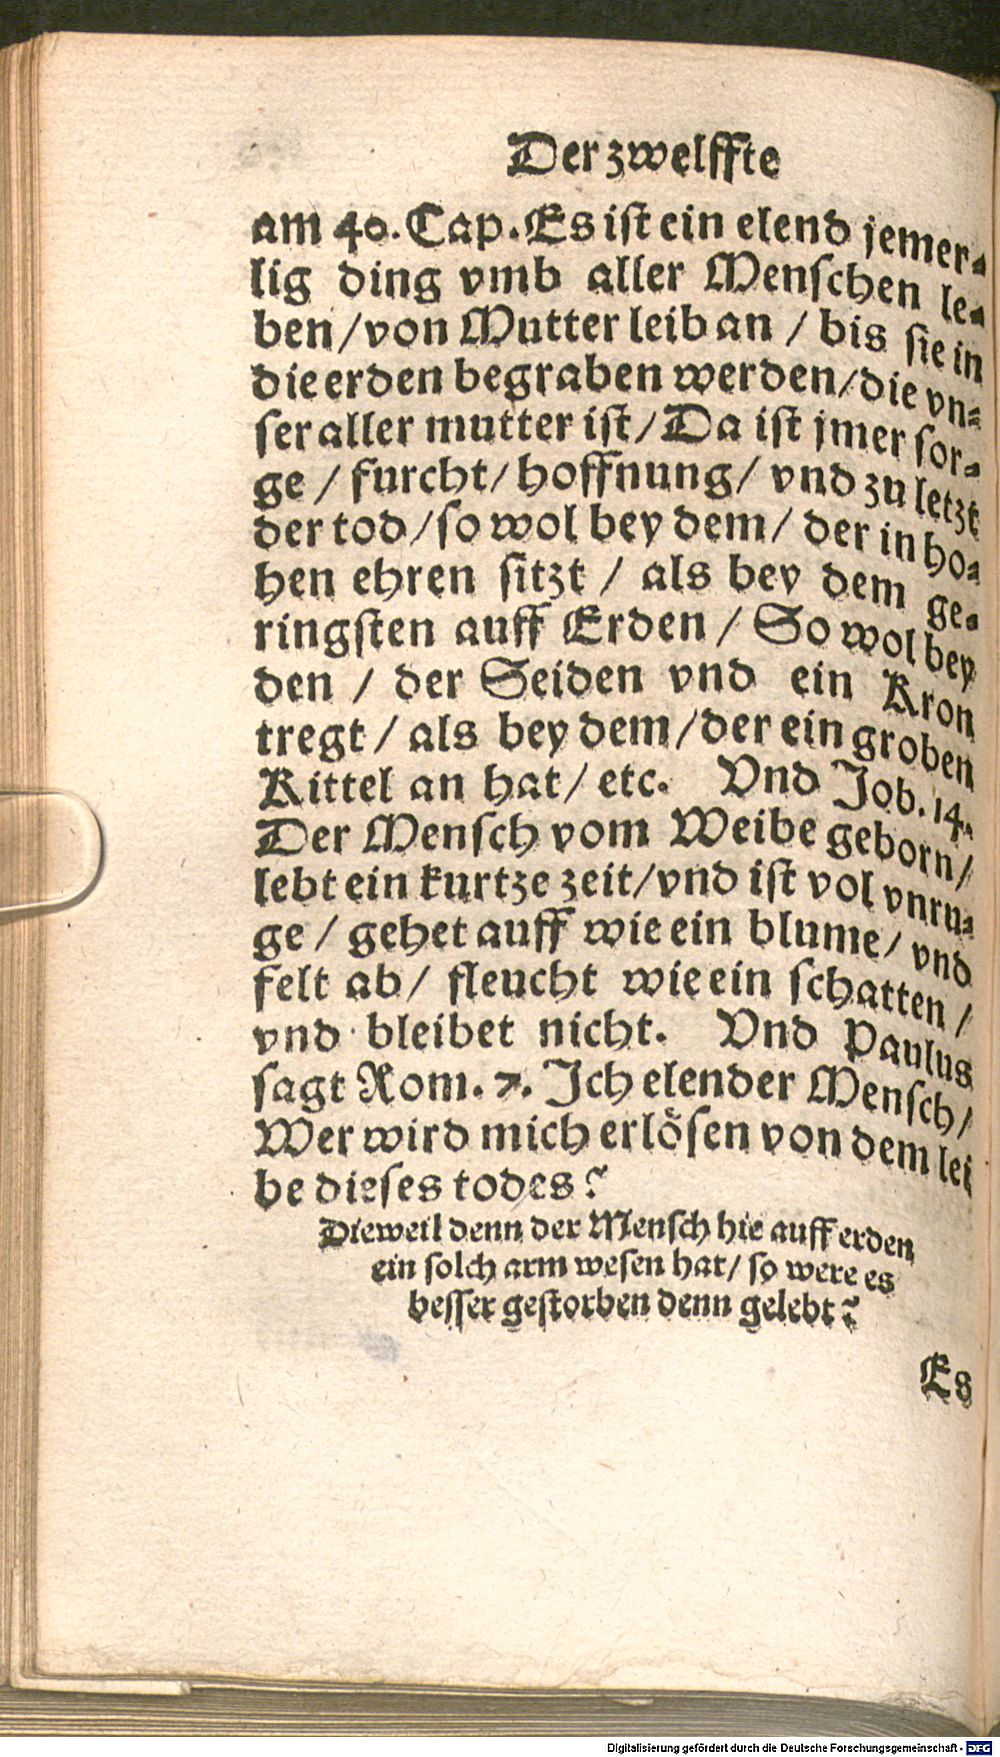 Der zwelffte
am 40. Cap. Es ist ein elend jemer-
lig ding vmb aller Menschen le-
ben / von Mutter leib an / bis sie in
die erden begraben werden / die vn-
ser aller mutter ist / Da ist jmer sor-
ge / furcht / hoffnung / vnd zu letzt
der tod / so wol bey dem / der in ho-
hen ehren sitzt / als bey dem ge-
ringsten auff Erden / So wol bey
den / der Seiden vnd ein Kron
tregt / als bey dem / der ein groben
Kittel an hat / etc. Vnd Job. 14.
Der Mensch vom Weibe geborn /
lebt ein kurtze zeit / vnd ist vol vnru-
ge / gehet auff wie ein blume / vnd
felt ab / fleucht wie ein schatten /
vnd bleibet nicht. Vnd Paulus
sagt Rom. 7. Ich elender Mensch /
Wer wird mich erlösen von dem lei
be dieses todes?
Dieweil denn der Mensch hie auff erden
ein solch arm wesen hat / so were es
besser gestorben denn gelebt?
Es
Digitalisierung gefördert durch die Deutsche Forschungsgemeinschaft - DFG